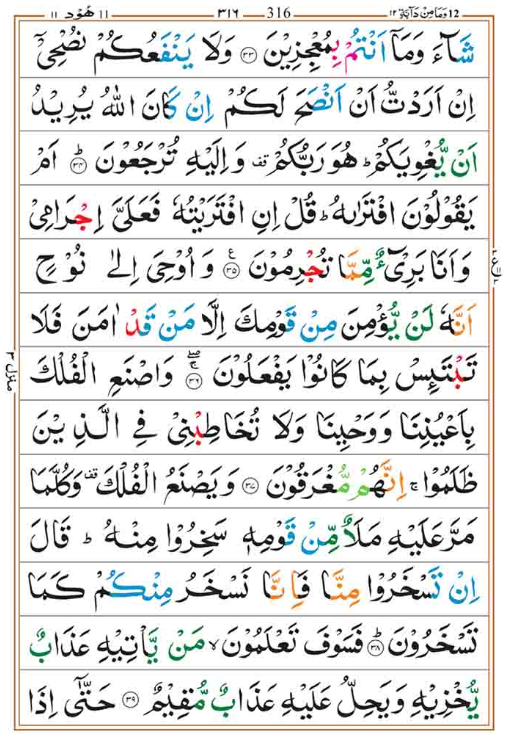 ١٢ وَمَا مِنْ دَآبَّةٍ 12 316 ٣١٦ هُوْد ١١
شَآءَ وَمَآ اَنْتُمْ بِمُعْجِزِيْنَ ۝٣٣ وَلَا يَنْفَعُكُمْ نُصْحِيْٓ
اِنْ اَرَدْتُّ اَنْ اَنْصَحَ لَكُمْ اِنْ كَانَ اللّٰهُ يُرِيْدُ
اَنْ يُّغْوِيَكُمْ ؕ هُوَ رَبُّكُمْ ۫ وَاِلَيْهِ تُرْجَعُوْنَ ۝٣٤ ؕ اَمْ
يَقُوْلُوْنَ افْتَرٰىهُ ؕ قُلْ اِنِ افْتَرَيْتُهٗ فَعَلَيَّ اِجْرَامِيْ
وَاَنَا بَرِيْٓءٌ مِّمَّا تُجْرِمُوْنَ ۝٣٥ ع وَاُوْحِيَ اِلٰى نُوْحٍ
اَنَّهٗ لَنْ يُّؤْمِنَ مِنْ قَوْمِكَ اِلَّا مَنْ قَدْ اٰمَنَ فَلَا
تَبْتَئِسْ بِمَا كَانُوْا يَفْعَلُوْنَ ۝٣٦ ۖ ۚ وَاصْنَعِ الْفُلْكَ
بِاَعْيُنِنَا وَوَحْيِنَا وَلَا تُخَاطِبْنِيْ فِي الَّذِيْنَ
ظَلَمُوْا ۚ اِنَّهُمْ مُّغْرَقُوْنَ ۝٣٧ وَيَصْنَعُ الْفُلْكَ ۫ وَكُلَّمَا
مَرَّ عَلَيْهِ مَلَاٌ مِّنْ قَوْمِهٖ سَخِرُوْا مِنْهُ ؕ قَالَ
اِنْ تَسْخَرُوْا مِنَّا فَاِنَّا نَسْخَرُ مِنْكُمْ كَمَا
تَسْخَرُوْنَ ۝٣٨ ؕ فَسَوْفَ تَعْلَمُوْنَ ۙ مَنْ يَّاْتِيْهِ عَذَابٌ
يُّخْزِيْهِ وَيَحِلُّ عَلَيْهِ عَذَابٌ مُّقِيْمٌ ۝٣٩ حَتّٰىٓ اِذَا
منزل ٣